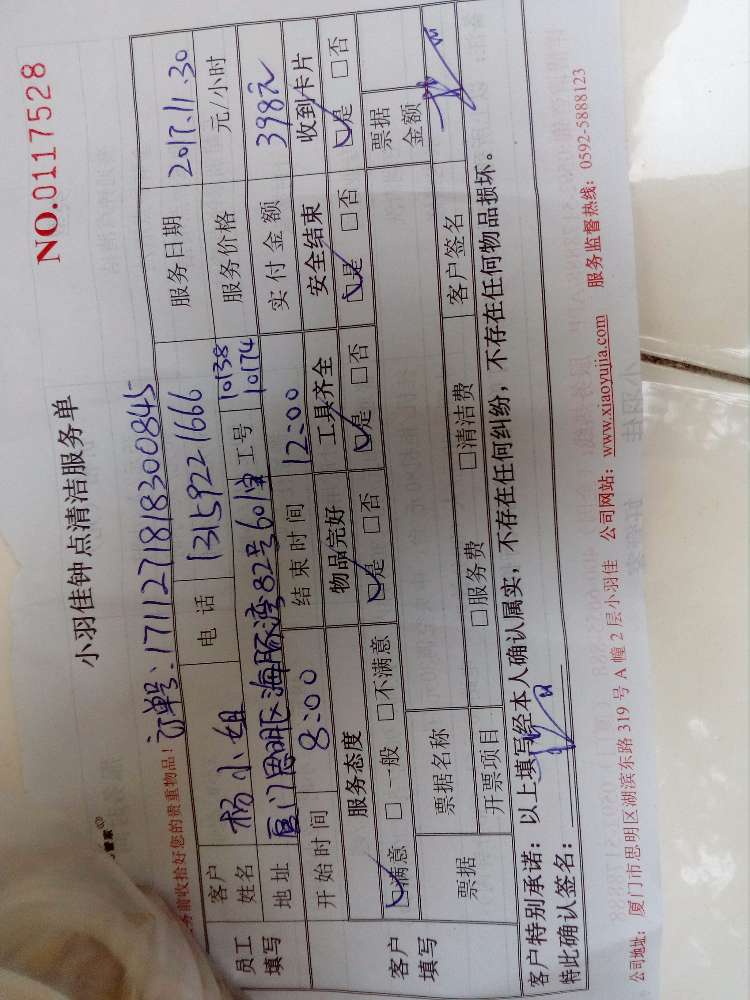 NO.0117528
小羽佳钟点清洁服务单
务前收拾好您的贵重物品！ 订单号：1711271818300845
员工填写 客户姓名 杨小姐 电话 13159221666 服务日期 2017.11.30
地址 厦门思明区海豚湾82号601室 工号 10138 10174 服务价格 元/小时
开始时间 8:00 结束时间 12:00 实付金额 398元
客户填写 服务态度 物品完好 工具齐全 安全结束 收到卡片
☑满意 □一般 □不满意 ☑是 □否 ☑是 □否 ☑是 □否 ☑是 □否
票据 票据名称 票据金额
开票项目 □服务费 □清洁费 客户签名
客户特别承诺：以上填写经本人确认属实，不存在任何纠纷，不存在任何物品损坏。
特此确认签名：
公司地址：厦门市思明区湖滨东路 319 号 A 幢 2 层小羽佳 公司网站：www.xiaoyujia.com 服务监督热线：0592-5888123